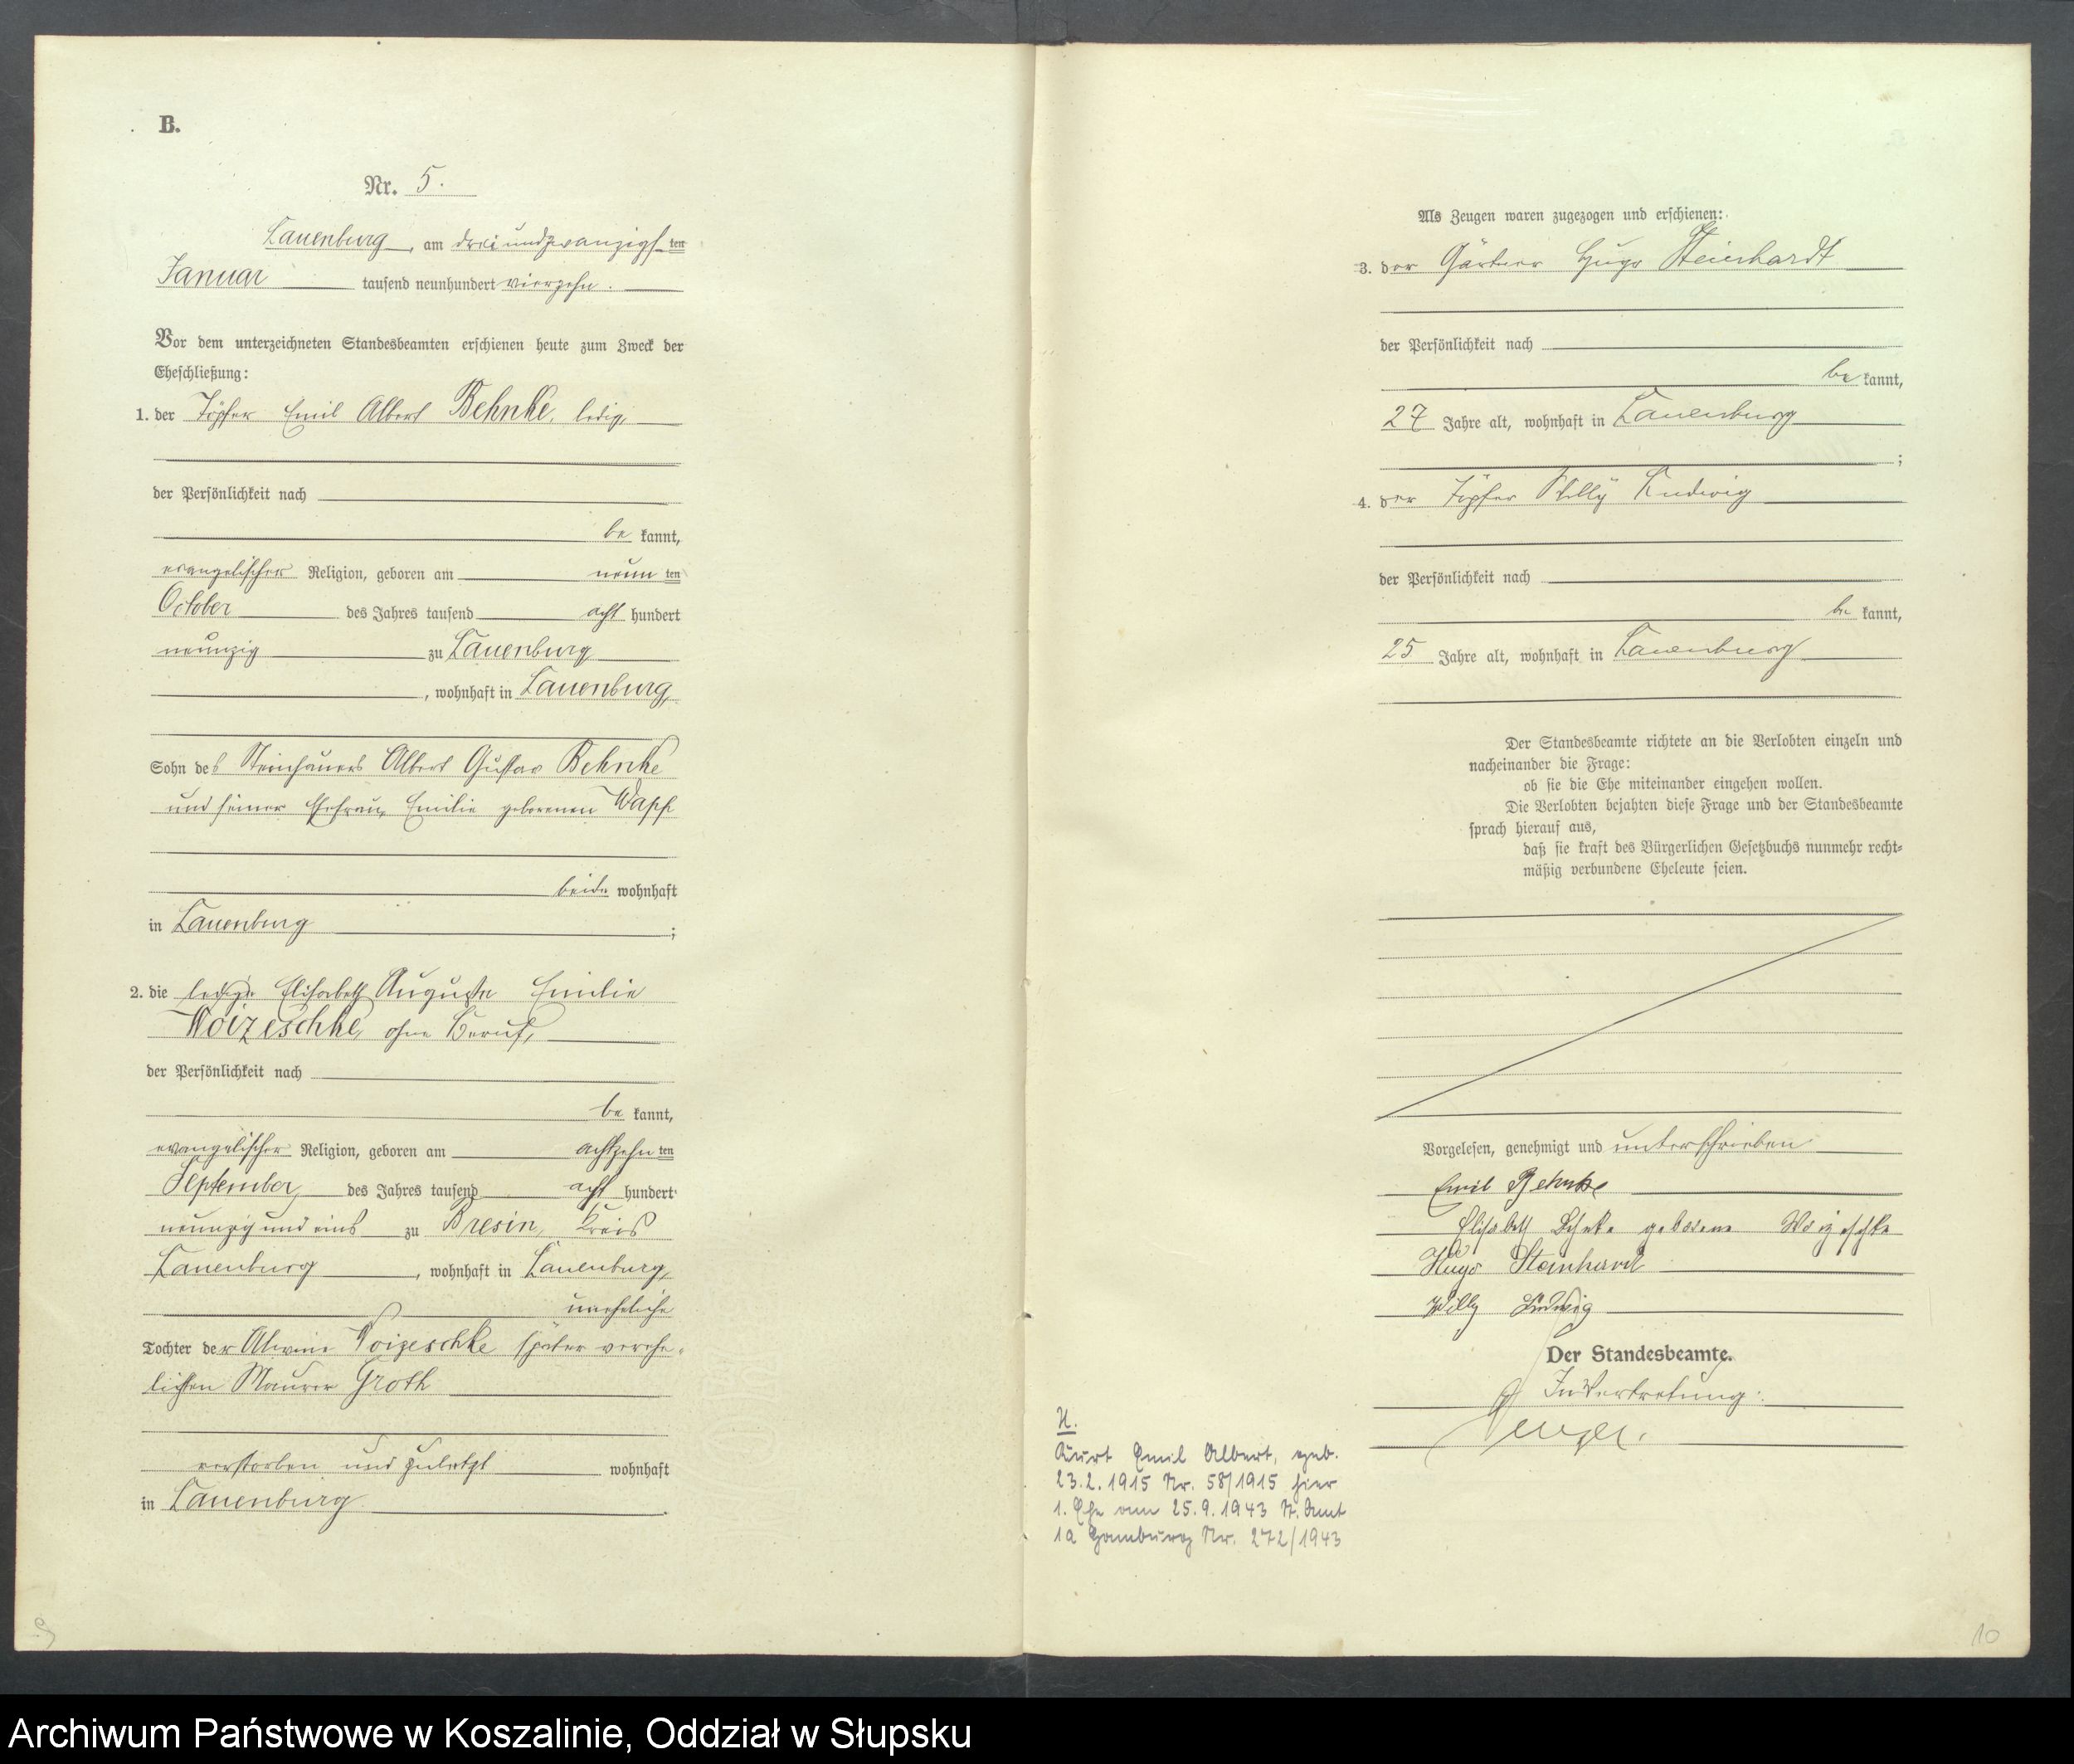 B.
Nr. 5.
Lauenburg, am dreiundzwanzigsten
Januar tausend neunhundert vierzehn.
Vor dem unterzeichneten Standesbeamten erschienen heute zum Zweck der
Eheschließung:
1. der Töpfer Emil Albert Behnke, ledig,
der Persönlichkeit nach
be kannt,
evangelischer Religion, geboren am neun ten
October des Jahres tausend acht hundert
neunzig zu Lauenburg
, wohnhaft in Lauenburg,
Sohn des Steinhauers Albert Gustav Behnke
und seiner Ehefrau, Emilie geborenen
beide wohnhaft
in Lauenburg ;
2. die ledige Elisabeth Auguste Emilie
Woizeschke, ohne Beruf,
der Persönlichkeit nach
be kannt,
evangelischer Religion, geboren am achtzehn ten
September des Jahres tausend acht hundert
neunzig und eins zu Bresin, Kreis
Lauenburg , wohnhaft in Lauenburg,
uneheliche
Tochter der Alwine Woizeschke später verehe-
lichten Maurer Groth
verstorben und zuletzt wohnhaft
in Lauenburg.
Als Zeugen waren zugezogen und erschienen:
3. der Gärtner Hugo Steinhardt
der Persönlichkeit nach
be kannt,
27 Jahre alt, wohnhaft in Lauenburg
;
4. der Töpfer Willy Ludwig
der Persönlichkeit nach
be kannt,
25 Jahre alt, wohnhaft in Lauenburg
Der Standesbeamte richtete an die Verlobten einzeln und
nacheinander die Frage:
ob sie die Ehe miteinander eingehen wollen.
Die Verlobten bejahten diese Frage und der Standesbeamte
sprach hierauf aus,
daß sie kraft des Bürgerlichen Gesetzbuchs nunmehr recht-
mäßig verbundene Eheleute seien.
Vorgelesen, genehmigt und unterschrieben
Emil Behnke
Elisabeth Behnke geborene Woizeschke
Hugo Steinhardt
Willy Ludwig
Der Standesbeamte.
In Vertretung:
H.
Kurt Emil Albert, geb.
23.2.1915 Nr. 58/1915 hier
1. Ehe am 25.9.1943 St. Amt
1a Hamburg Nr. 272/1943
9
10
Archiwum Państwowe w Koszalinie, Oddział w Słupsku